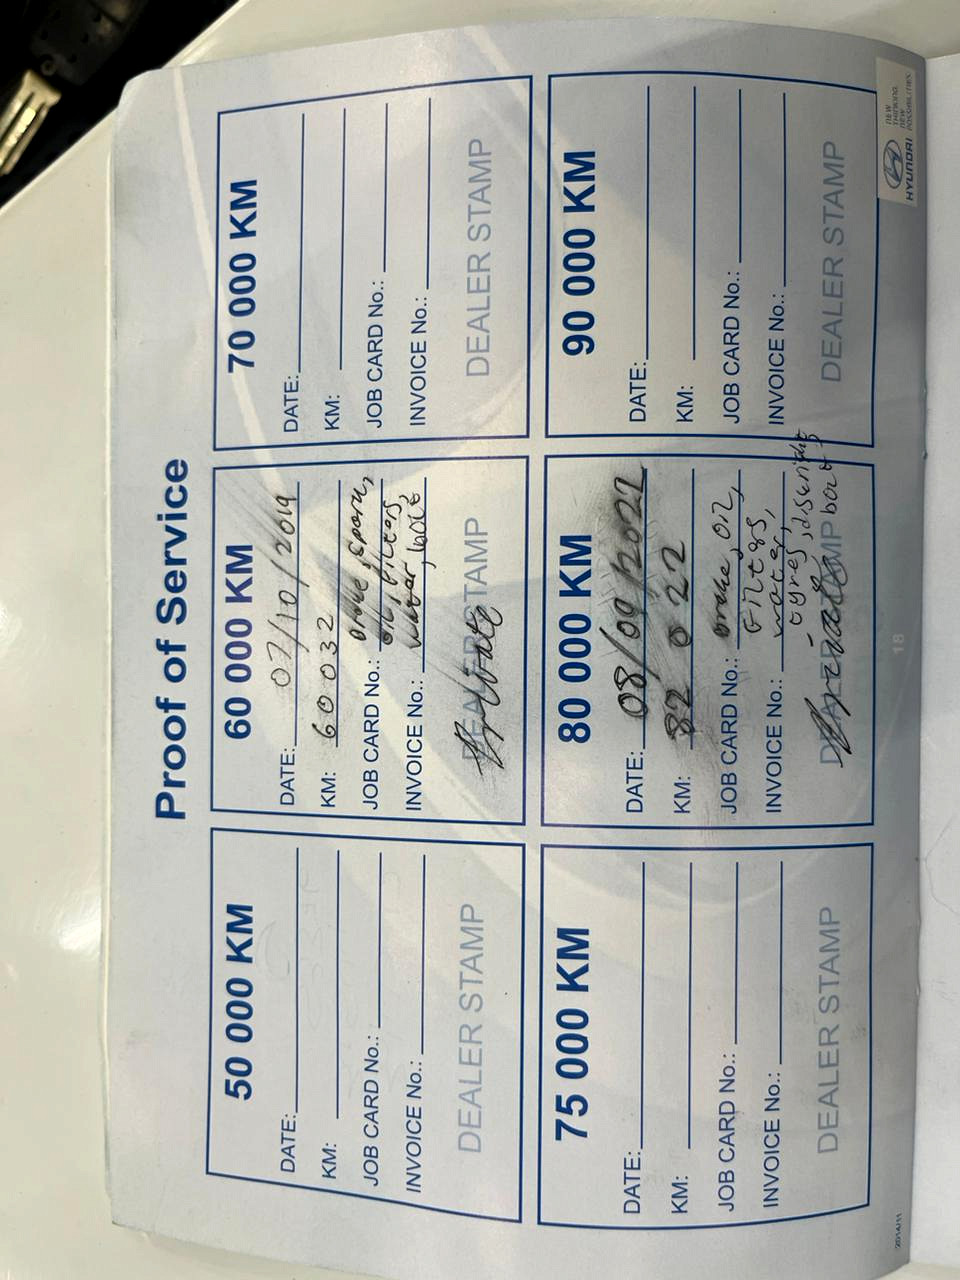 Proof of Service
50 000 KM
DATE:
KM:
JOB CARD No.:
INVOICE No.:
DEALER STAMP
60 000 KM
DATE: 07/10/2019
KM: 60 032
JOB CARD No.:
oil, filters,
INVOICE No.: water,
DEALER STAMP
70 000 KM
DATE:
KM:
JOB CARD No.:
INVOICE No.:
DEALER STAMP
75 000 KM
DATE:
KM:
JOB CARD No.:
INVOICE No.:
DEALER STAMP
80 000 KM
DATE: 08/09/2022
KM: 82 022
JOB CARD No.: brake, oil,
filters,
INVOICE No.: water,
tyres,
DEALER STAMP
90 000 KM
DATE:
KM:
JOB CARD No.:
INVOICE No.:
DEALER STAMP
2014/11
18
HYUNDAI
NEW
THINKING.
NEW
POSSIBILITIES.